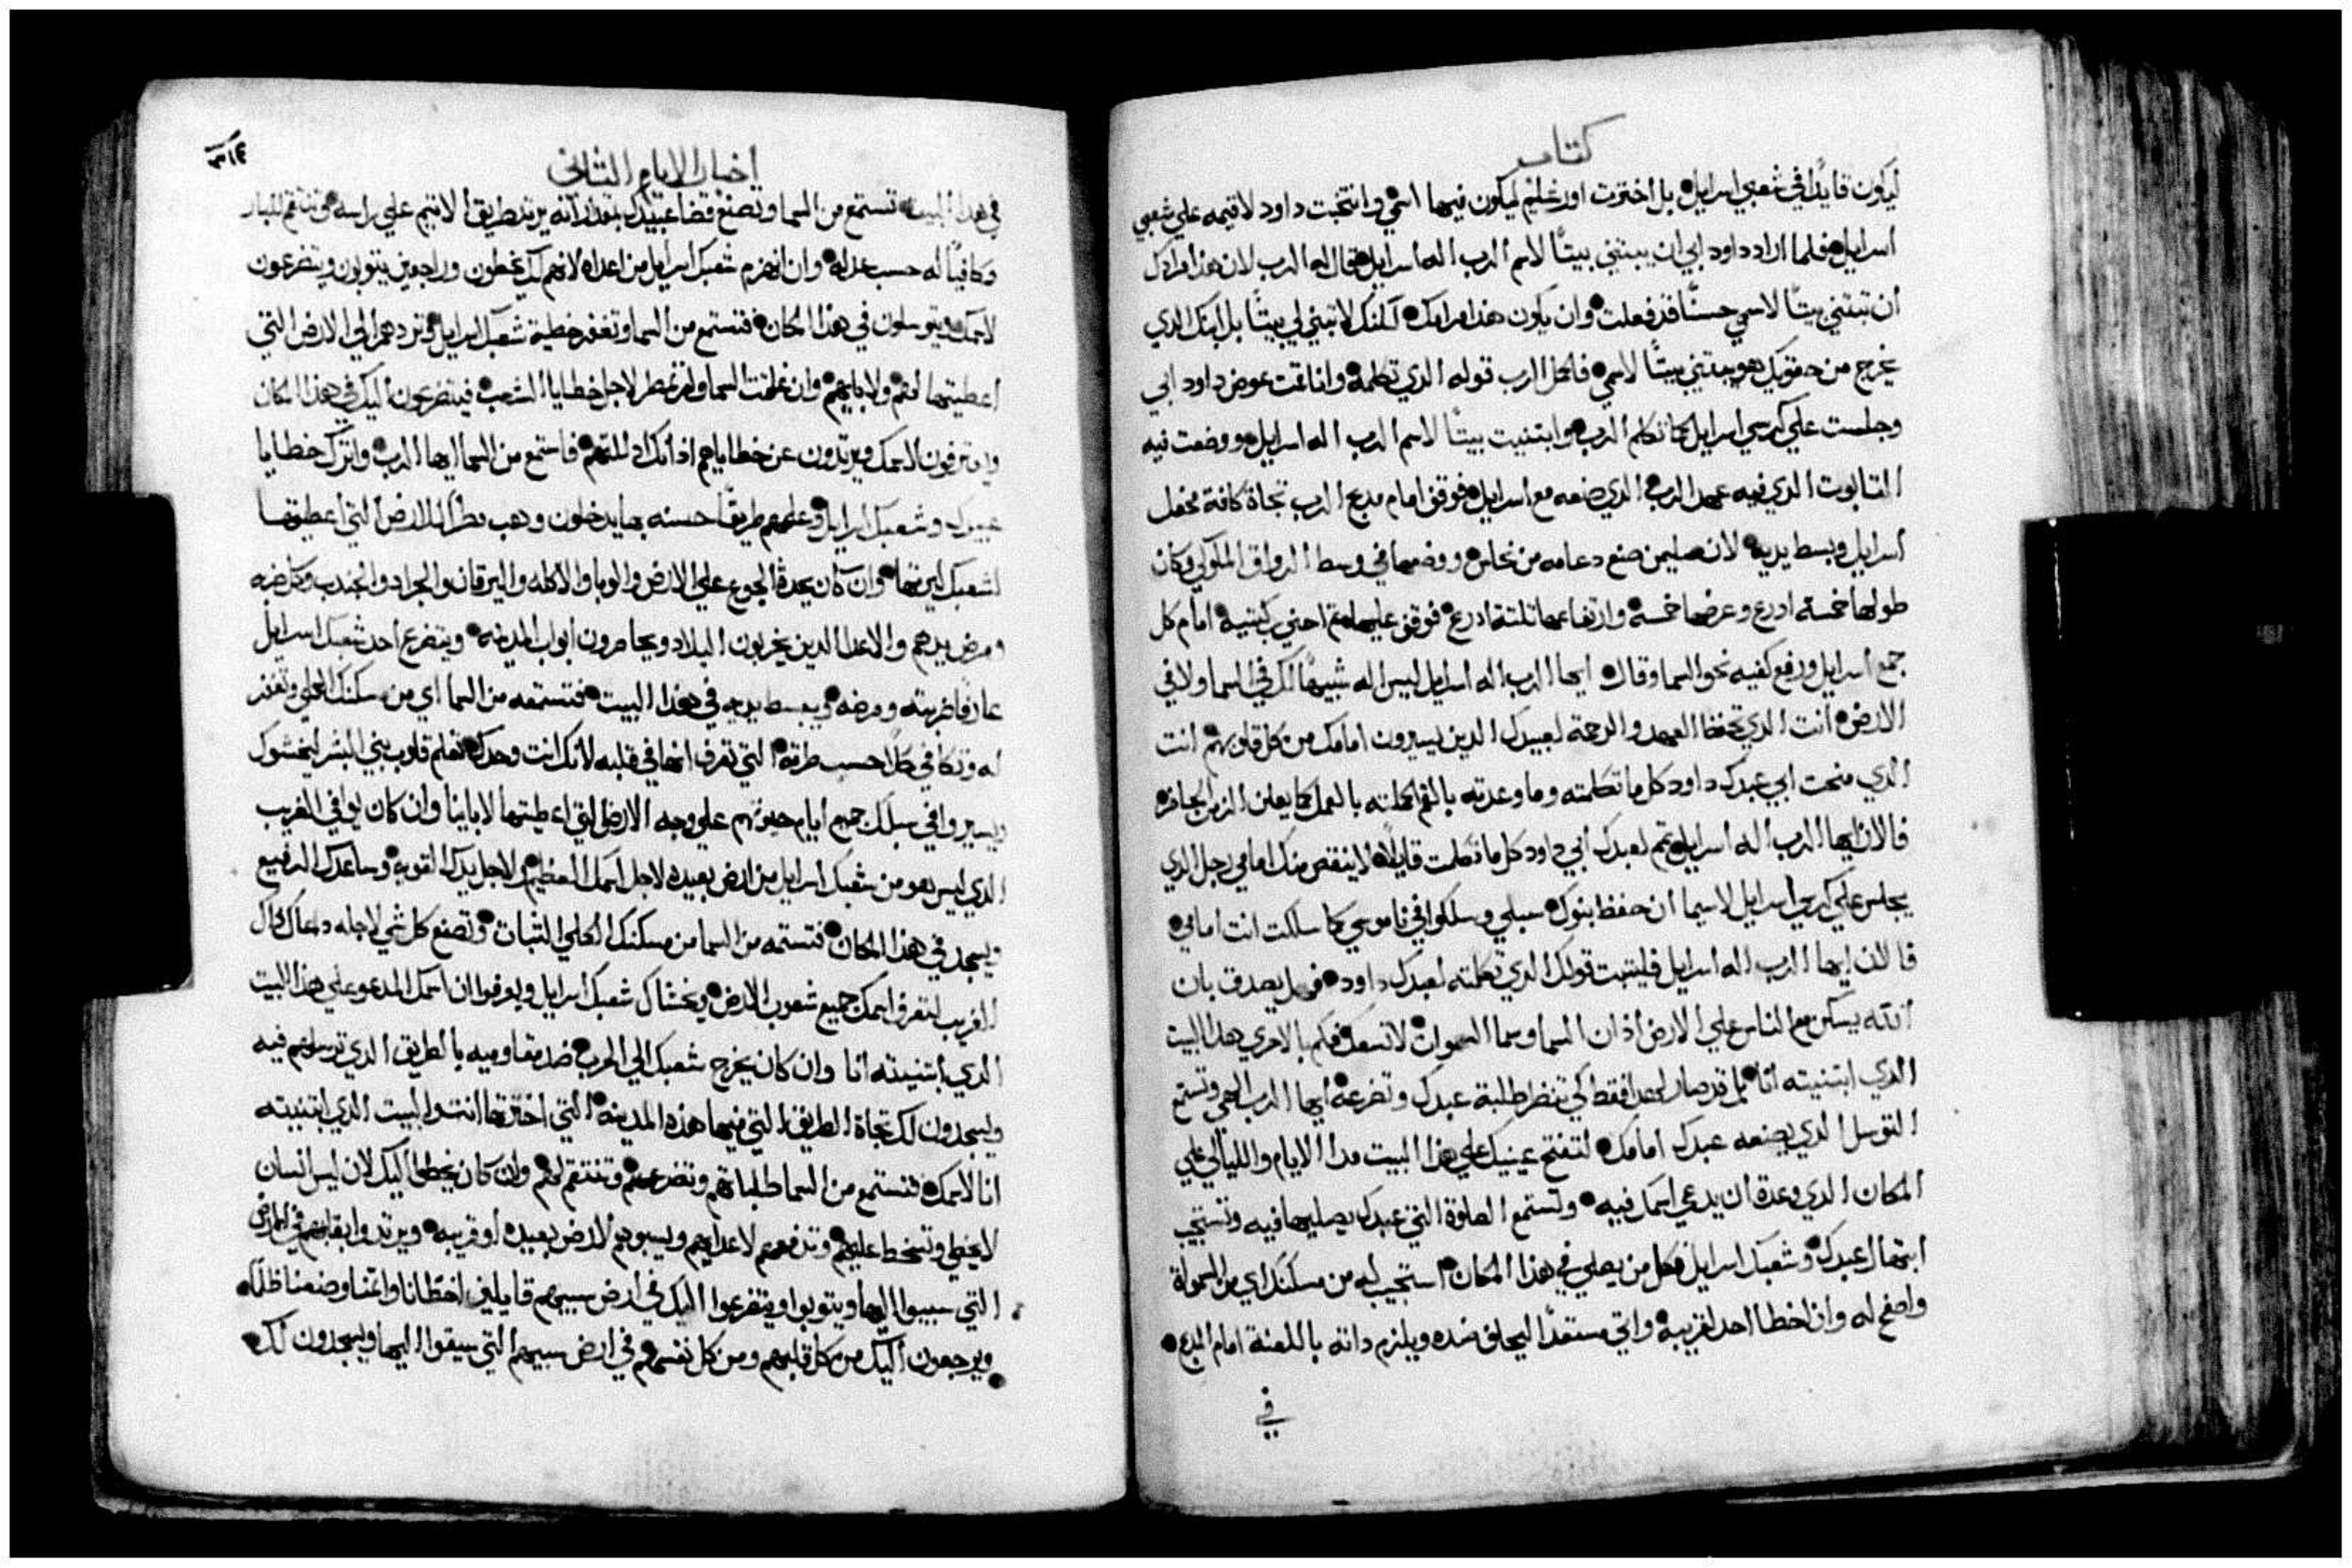 كتاب
ليكون قايدًا في شعبي اسرايل بل اخترت اورشليم ليكون فيها اسمي وانتخبت داود لاقيمه علي شعبي
اسرايل فلما اراد داود ابي ان يبتني بيتًا لاسم الرب اله اسرايل فقال له الرب لان هذا مرادك
ان تبتني بيتًا لاسمي حسنًا قد فعلت وان يكون هذا مرامك لكنك لا تبني لي بيتًا بل ابنك الدي
يخرج من حقويك هو يبتني بيتًا لاسمي فاكمل الرب قوله الدي تكلمه وانا قمت عوض داود ابي
وجلست علي كرسي اسرايل كما تكلم الرب وابتنيت بيتًا لاسم الرب اله اسرايل ووضعت فيه
التابوت الدي فيه عهد الرب الدي صنعه مع اسرايل فوقف امام مدبح الرب تجاة كافة محفل
اسرايل وبسط يديه لان صليمن صنع دعامه من نحاس ووضعها في وسط الرواق الملوكي وكان
طولها خمسة ادرع وعرضها خمسة وارتفاعها تلتة ادرع فوقف عليها تم احني ركبتيه امام كل
جمع اسرايل ورفع كفيه نحو السما وقال ايها الرب اله اسرايل ليس اله شبيهًا لك في السما ولا في
الارض انت الدي تحفظ العهد والرحمة لعبيدك الدين يسيرون امامك من كل قلوبهم انت
الدي منحت ابي عبدك داود كل ما تكلمته وما وعدته بالفم اكملته بالعمل كما يعلن الزمن الحاضر
فالان ايها الرب اله اسرايل تم لعبدك ابي داود كل ما تكلمت قايلًا لا ينقص منك امامي رجل الدي
يجلس علي كرسي اسرايل لاسيما ان حفظ بنوك سبلي وسلكوا في ناموسي كما سلكت انت امامي
فالان ايها الرب اله اسرايل فليتبت قولك الدي تكلمته لعبدك داود فهل يصدق بان
الله يسكن مع الناس علي الارض اد ان السما وسما السموات لا تسعك فكم بالاحري هدا البيت
الدي ابتنيته انا بل قد صار لهدا فقط كي تنظر طلبة عبدك وتضرعه ايها الرب الهي وتستمع
التوسل الدي يصنعه عبدك امامك لتفتح عينيك علي هدا البيت مدا الايام والليالي علي
المكان الدي وعدة ان يدعي اسمك فيه وتستمع الصلوة التي عبدك يصليها فيه وتستجيب
ابتهال عبدك وشعبك اسرايل فكل من يصلي في هذا المكان استجيب له من مسكنك اي من السموات
واصفح له وان اخطا احد لقريبه واتي مستعدًا ليحلف ضده ويلزم داته باللعنة امام المدبح
في
اخبار الايام الثاني
في هدا البيت تستمع من السما وتصنع قضا عبيدك بمقدار انه يرتد طريق الاتيم علي راسه وتنتقم للبار
وكافيًا له حسب عدله وان انهزم شعبك اسرايل من اعداه لانهم لك يخطون وراجعين يتوبون ويتضرعون
لاسمك ويتوسلون في هذا المكان فتستمع من السما وتغفر خطية شعبك اسرايل وتردهم الي الارض التي
اعطيتها لهم ولابايهم وان غلقت السما ولم تمطر لاجل خطايا الشعب فيتضرعون اليك في هذا المكان
ويعترفون لاسمك ويرتدون عن خطاياهم اد انك ادللتهم فاستمع من السما ايها الرب واترك خطايا
عبيدك وشعبك اسرايل وعلمهم طريقًا حسنه بها يدخلون وهب مطرًا للارض التي اعطيتها
لشعبك ليرتها وان كان يحدة الجوع علي الارض والوبا والاكله واليرقان والجراد والجندب وكل ضربه
ومرض يدهم والاعدا الدين يخربون البلاد ويحاصرون ابواب المدينه ويتضرع احد شعبك اسرايل
عارفًا ضربته ومرضه ويبسط يديه في هذا البيت فتستمعه من السما اي من مسكنك العلي وتغفر
له وتكافي كلًا حسب طرقه التي تعرف انها في قلبه لانك انت وحدك تعلم قلوب بني البشر ليخشوك
ويسيروا في سبلك جميع ايام حيوتهم علي وجه الارض التي اعطيتها لاباينا وان كان يوافي الغريب
الدي ليس هو من شعبك اسرايل من ارض بعيده لاجل اسمك العظيم لاجل يدك القويه وساعدك الرفيع
ويسجد في هذا المكان فتستمعه من السما من مسكنك الكلي التبات وتصنع كل شي لاجله دعاك داك
الغريب لتعرف اسمك جميع شعوب الارض ويخشاك شعبك اسرايل وليعرفوا ان اسمك المدعو علي هذا البيت
الدي ابتنيته انا وان كان يخرج شعبك الي الحرب ضد مقاوميه بالطريق الدي ترسلهم فيه
ويسجدون لك تجاة الطريق التي فيها هذه المدينه التي اخترتها انت والبيت الدي ابتنيته
انا لاسمك فتستمع من السما طلباتهم وتضرعهم وتنتقم لهم وان كان يخطي اليك لان ليس انسان
لا يخطي وتسخط عليهم وتدفعهم لاعدايهم ويسبوهم لارض بعيده او قريبه ويرتدوا بقلبهم في الارض
التي سبيوا اليها ويتوبوا ويتضرعوا اليك في ارض سبيهم قايلين اخطانا واتمنا وصنعنا ظلمًا
ويرجعون اليك من كل قلبهم ومن كل نفسهم في ارض سبيهم التي سيقوا اليها ويسجدون لك